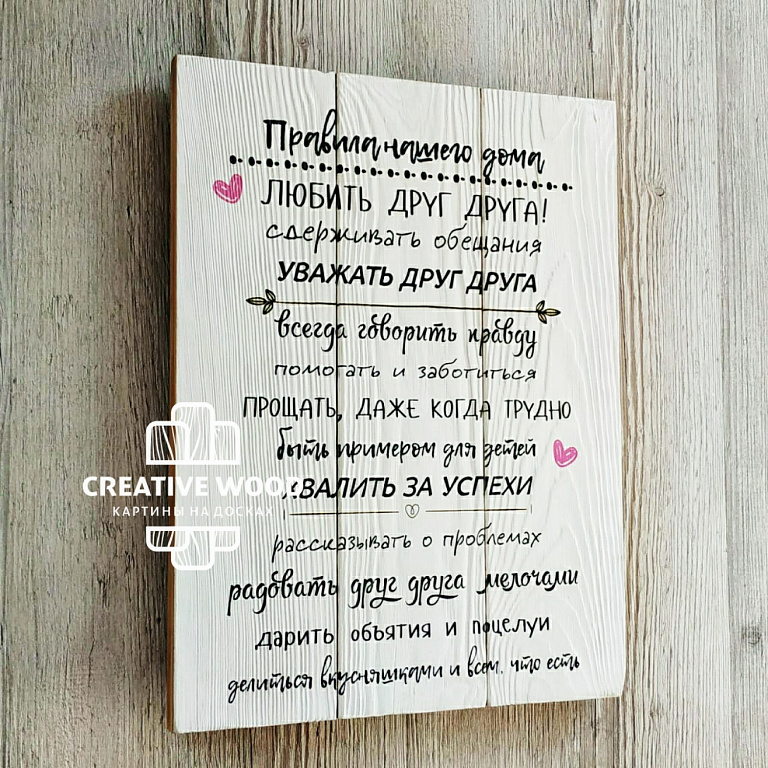 Правила нашего дома
ЛЮБИТЬ ДРУГ ДРУГА!
сдерживать обещания
УВАЖАТЬ ДРУГ ДРУГА
всегда говорить правду
помогать и заботиться
ПРОЩАТЬ, ДАЖЕ КОГДА ТРУДНО
быть примером для детей
ХВАЛИТЬ ЗА УСПЕХИ
рассказывать о проблемах
радовать друг друга мелочами
дарить объятия и поцелуи
делиться вкусняшками и всем, что есть
CREATIVE WOOD
КАРТИНЫ НА ДОСКАХ